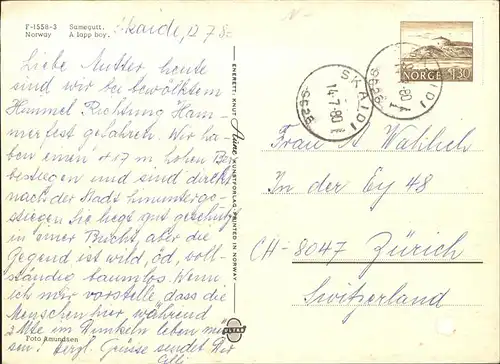 F-1558-3 Samegutt.
Norway A lapp boy.
Skaide, 12.7.80
Liebe Mutter, heute
sind wir bei bewölktem
Himmel Richtung Ham-
merfest gefahren. Wir ha-
ben einen 417 m hohen Berg
bestiegen und sind direkt
nach der Stadt hinunterge-
stiegen. Sie liegt gut geschützt
in einer Bucht, aber die
Gegend ist wild, öd, voll-
ständig baumlos. Wenn
ich mir vorstelle, dass die
Menschen hier während
2 Mte im Dunkeln leben müs-
Foto Amundsen
sen! Herzl. Grüsse sendet Dir
ENERETT: KNUT Aune KUNSTFORLAG. PRINTED IN NORWAY
ULTRA
NORGE 1,30
SKAIDI
14-7-80
9626
SKAIDI
9626
Frau A Wahlich
In der Ey 48
CH-8047 Zürich
Switzerland